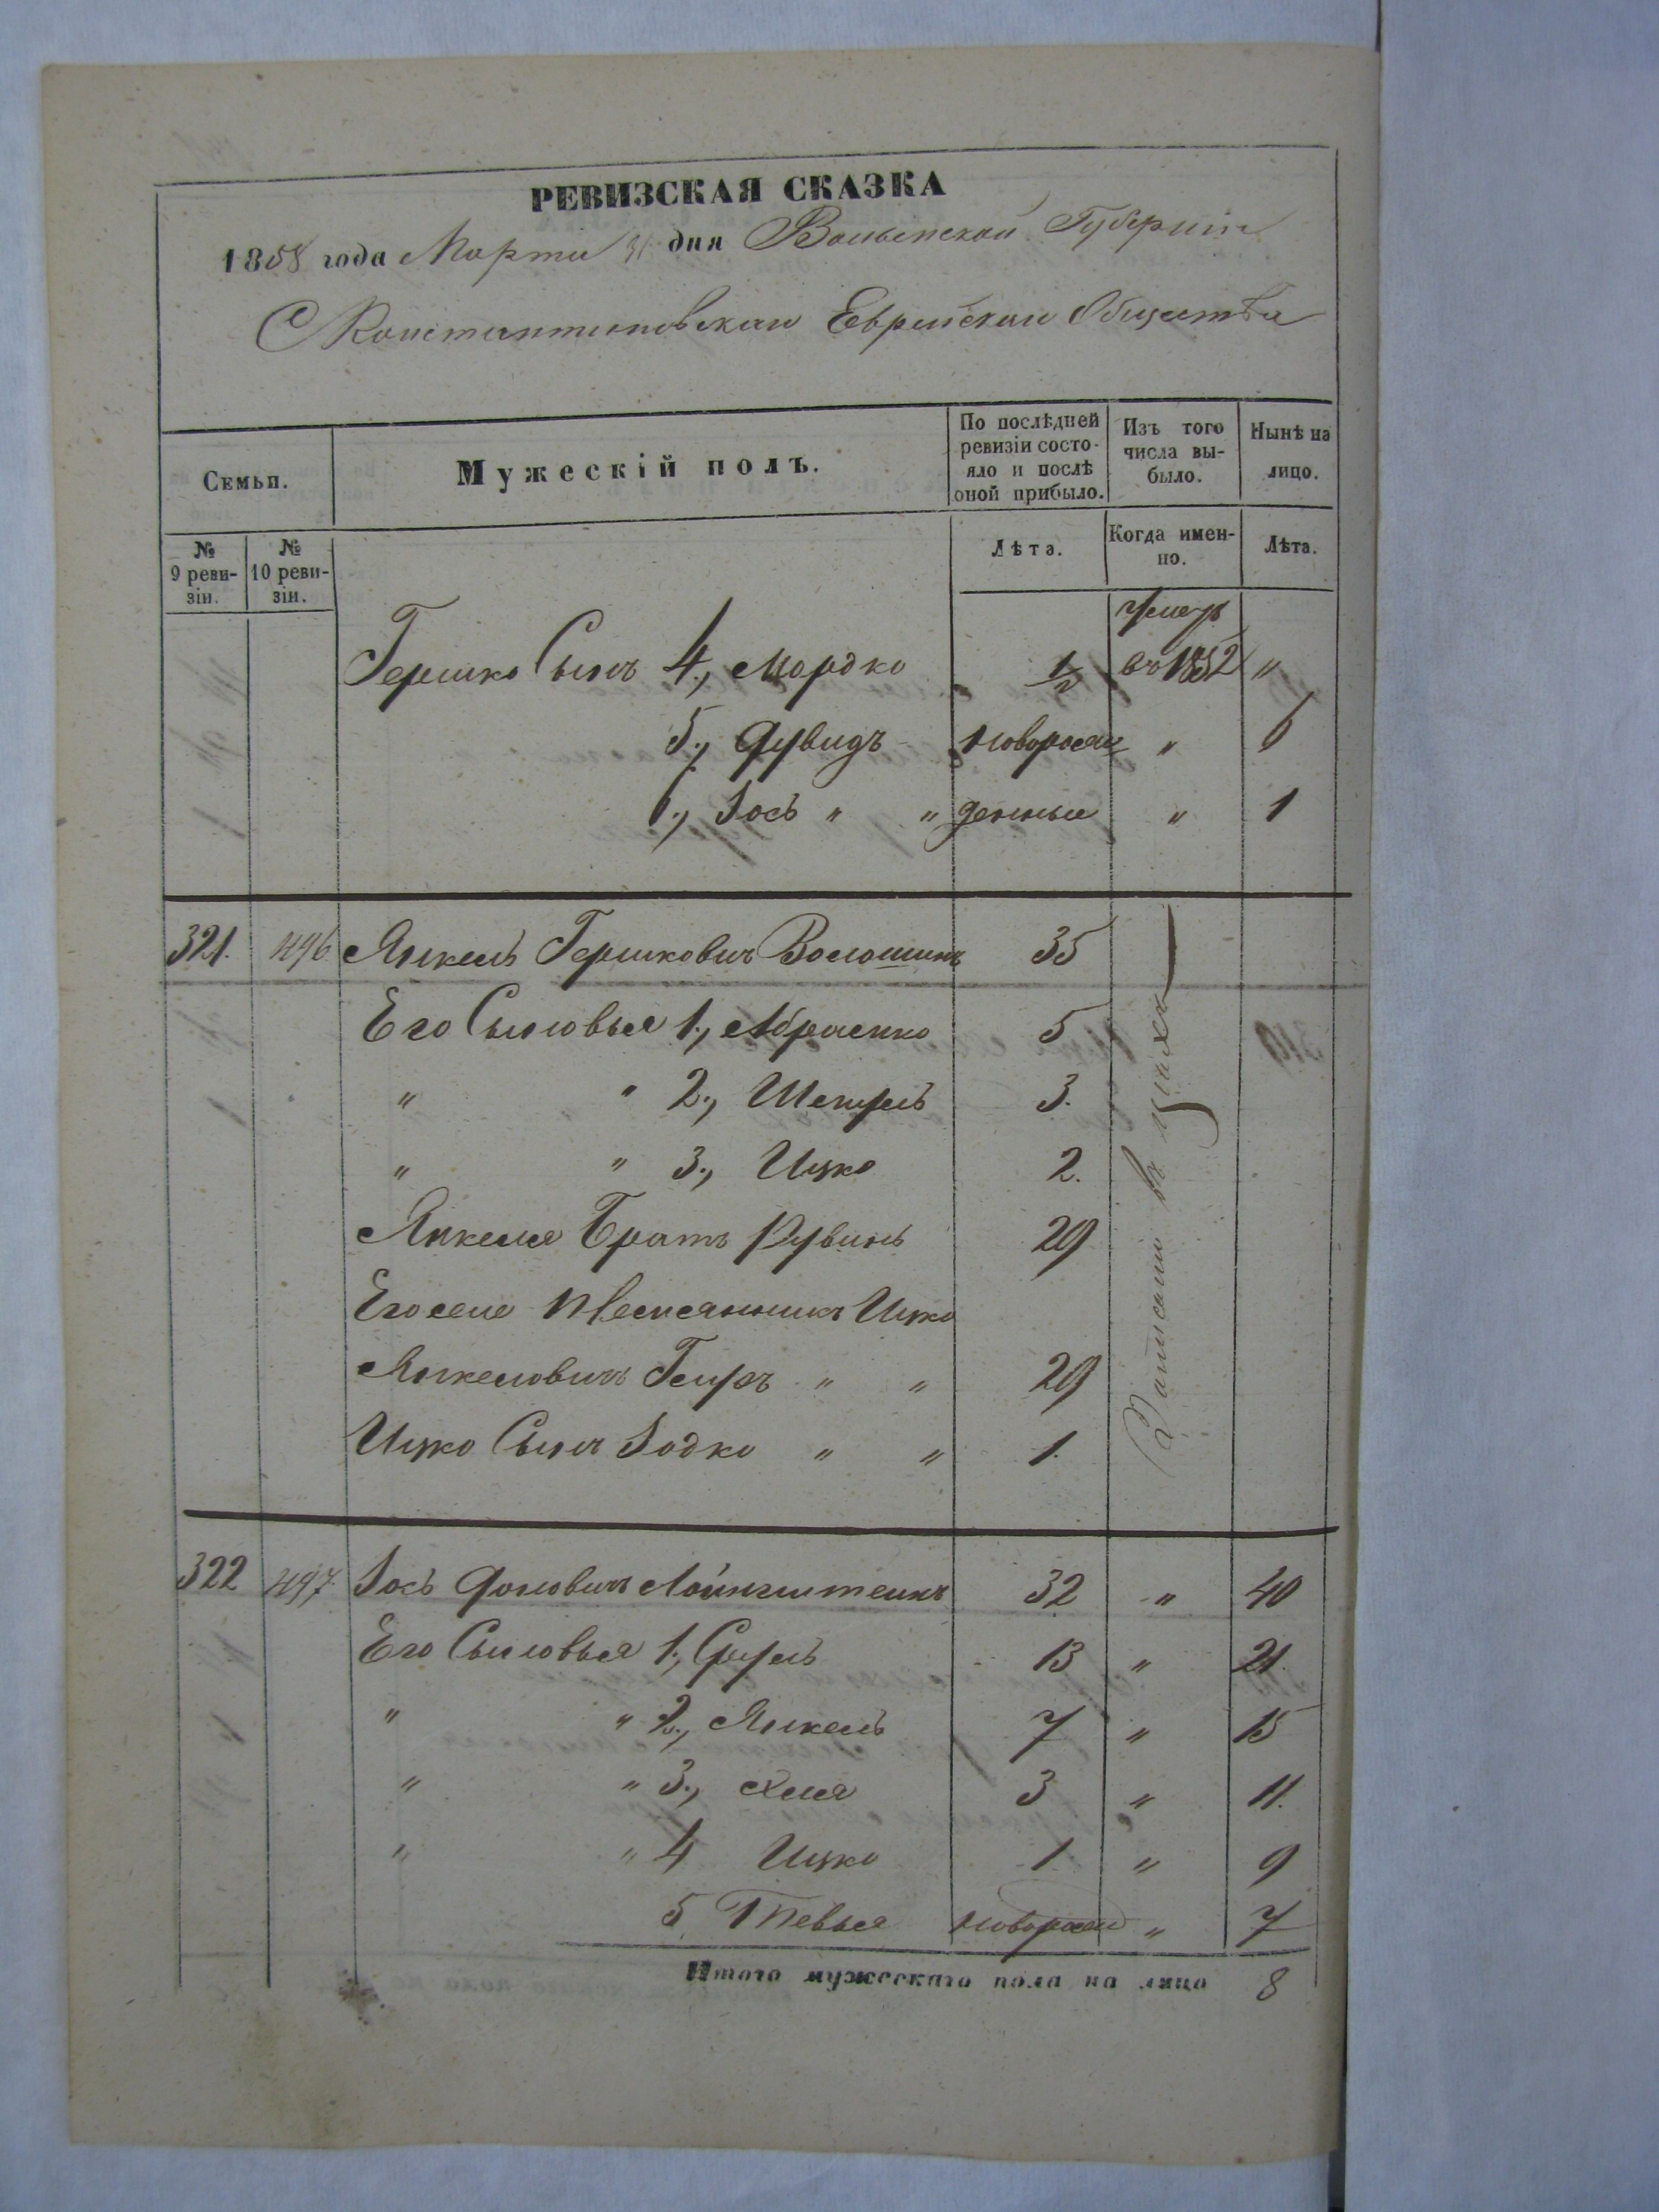 РЕВИЗСКАЯ СКАЗКА
1858 года Марта 31 дня Волынской Губерніи
С Константиновскаго Еврейскаго Общества
Семьи.
Мужескій полъ.
По послѣдней ревизіи состо-яло и послѣ оной прибыло.
Изъ того числа вы-было.
Нынѣ на лицо.
№ 9 реви-зіи.
№ 10 реви-зіи.
Лѣта.
Когда имен-но.
Лѣта.
умеръ
Гершко Сынъ 4., Мордко 1/2 въ 1852 "
5., Дувидъ новорож " 6
6., Іось " " денные " 1
321. 496 Янкель Гершковичъ Волошинъ 35
Его Сыновья 1., Абрамко 5
" " 2., 3.
" " 3., Ицко 2.
Янкеля Братъ Рувинъ 29
Его же Племянникъ Ицко
Янкелевичъ " " 29
Ицко Сынъ Іодко " " 1.
Записаны въ цехъ
322 497. Іось 32 " 40
Его Сыновья 1., Сруль 13 " 21.
" " 2., Янкель 7 " 15
" " 3., 3 " 11.
" " 4 Ицко 1 " 9
5 Тевья новорож " 7
Итого мужескаго пола на лицо 8